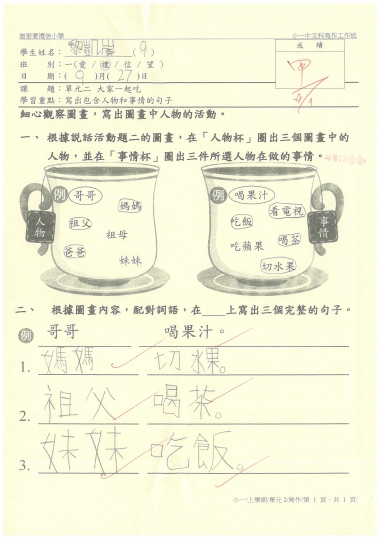 小一中文科寫作工作紙
學生姓名：黎凱(9)
成績
甲
班別：一(愛/禮/信/望)
日期：(9)月(27)日
課題：單元二 大家一起吃
學習重點：寫出包含人物和事情的句子
細心觀察圖畫，寫出圖畫中人物的活動。
一、根據說話活動題二的圖畫，在「人物杯」圈出三個圖畫中的
人物，並在「事情杯」圈出三件所選人物在做的事情。
人物
例 哥哥
媽媽
祖父
祖母
爸爸
妹妹
事情
例 喝果汁
看電視
吃飯
喝茶
吃蘋果
切水果
二、根據圖畫內容，配對詞語，在____上寫出三個完整的句子。
例 哥哥 喝果汁。
1. 媽媽 切水粿。
2. 祖父 喝茶。
3. 妹妹 吃飯。
小一/上學期/單元2/寫作/第1頁，共1頁/